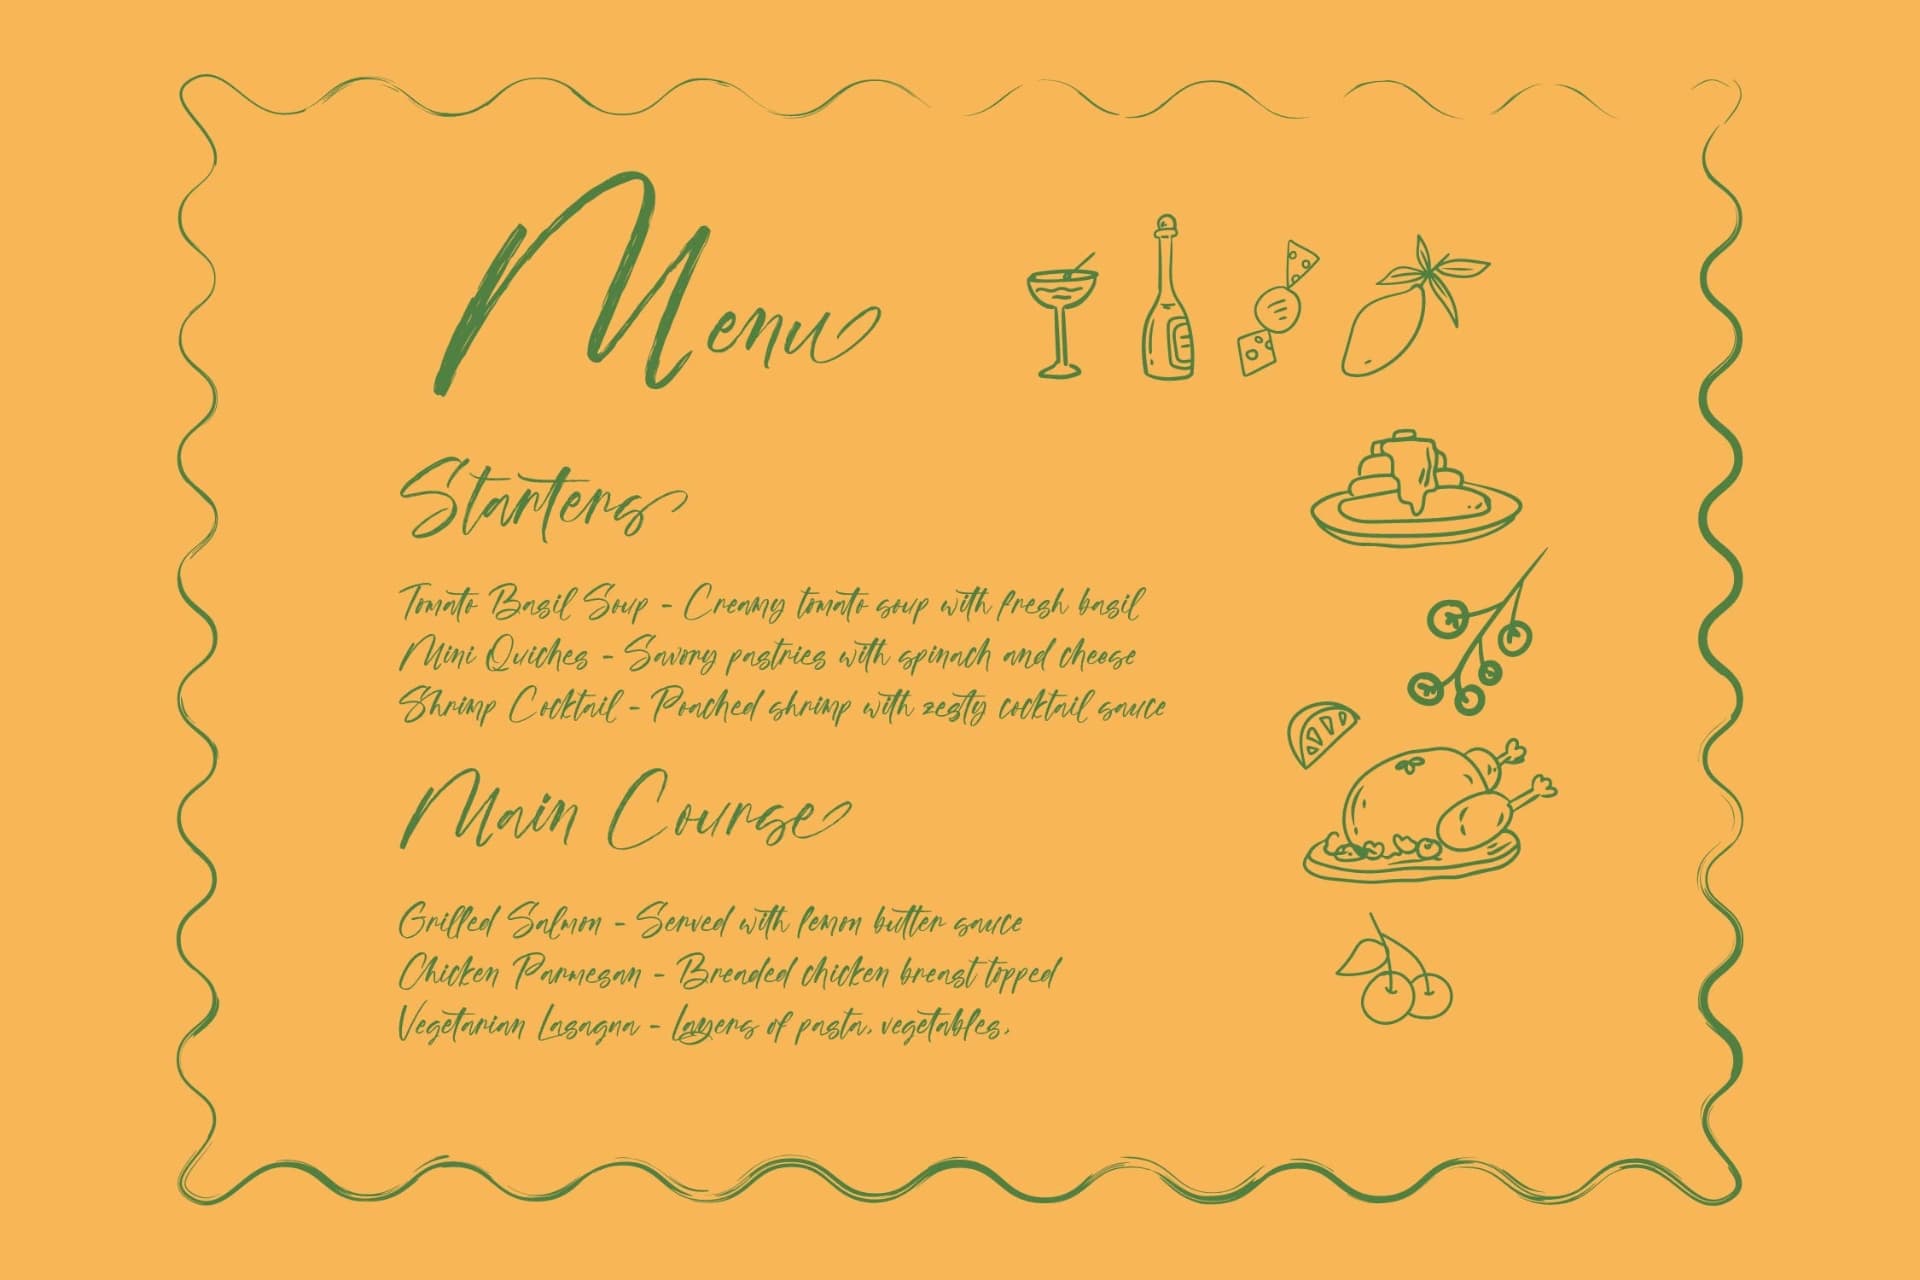 Menu
Starters
Tomato Basil Soup - Creamy tomato soup with fresh basil
Mini Quiches - Savory pastries with spinach and cheese
Shrimp Cocktail - Poached shrimp with zesty cocktail sauce
Main Course
Grilled Salmon - Served with lemon butter sauce
Chicken Parmesan - Breaded chicken breast topped
Vegetarian Lasagna - Layers of pasta, vegetables,